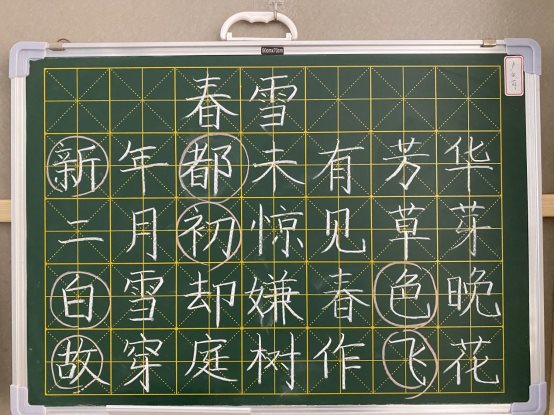 春雪
新年都未有芳华
二月初惊见草芽
白雪却嫌春色晚
故穿庭树作飞花